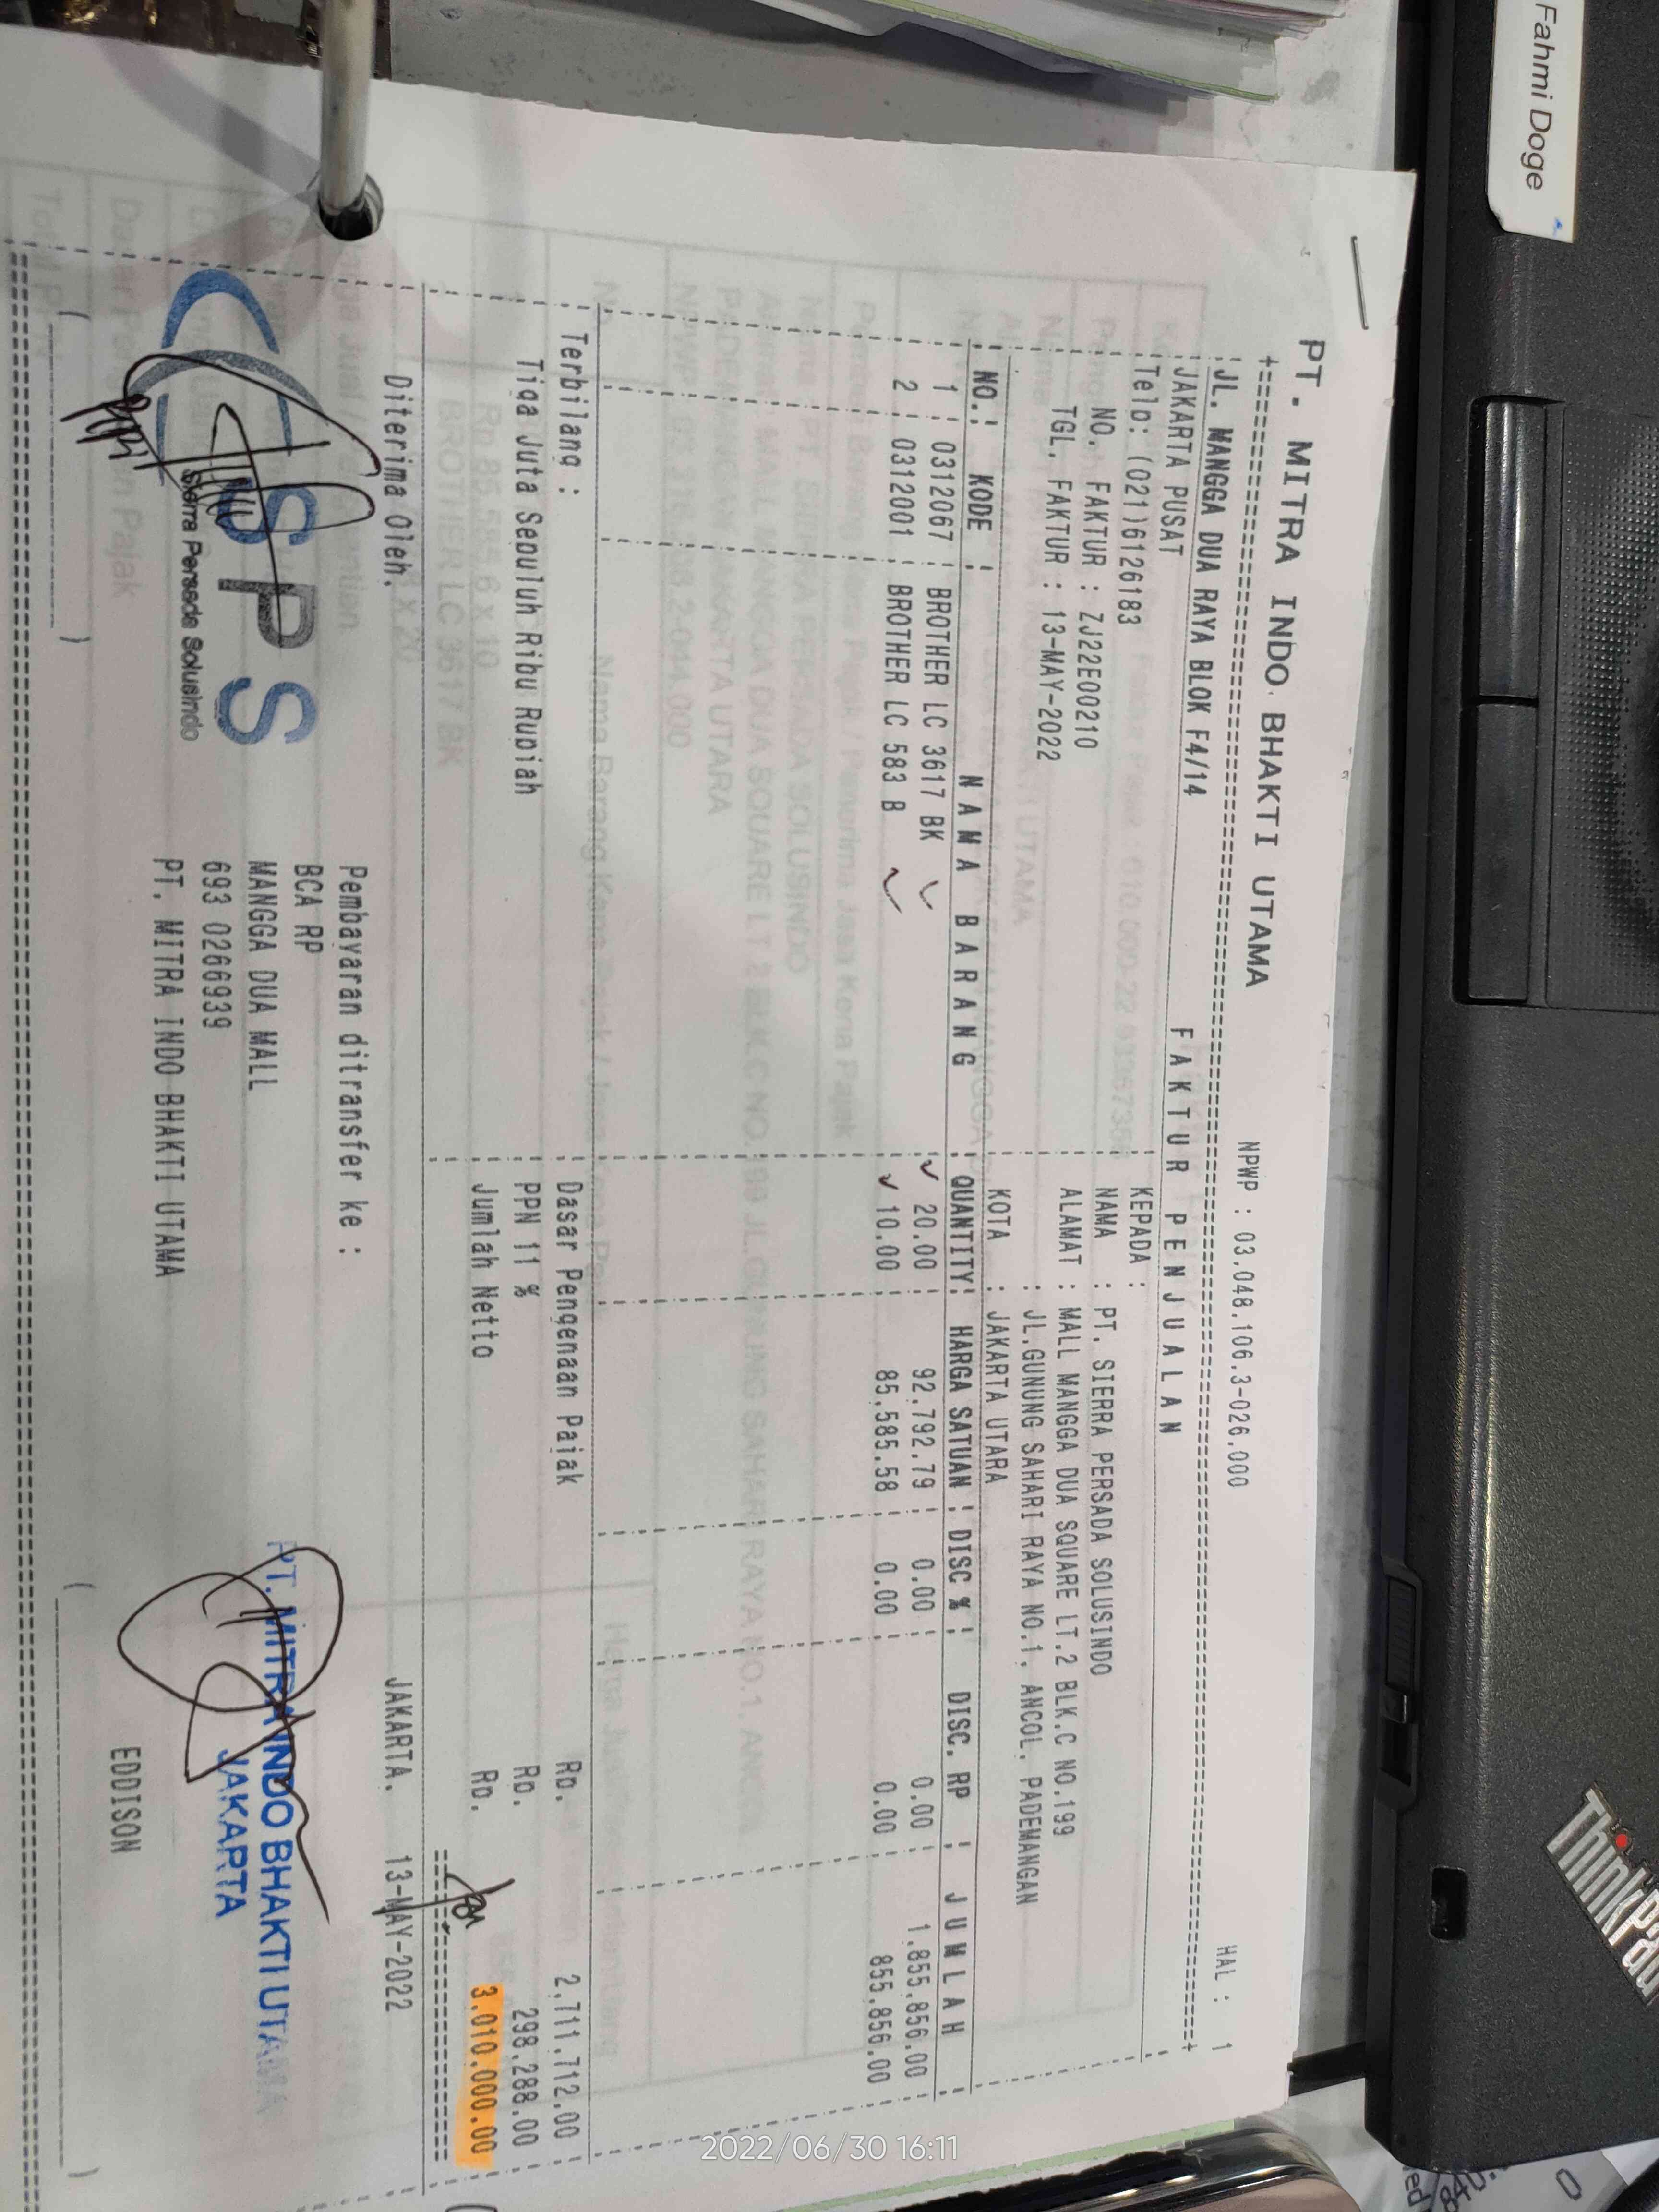 Fahmi Doge
ThinkPad
PT. MITRA INDO BHAKTI UTAMA
NPWP : 03.048.106.3-026.000
HAL : 1
JL. MANGGA DUA RAYA BLOK F4/14
JAKARTA PUSAT
F A K T U R   P E N J U A L A N
Telp: (021)6126183
KEPADA :
NO. FAKTUR : ZJ22E00210
NAMA : PT. SIERRA PERSADA SOLUSINDO
TGL. FAKTUR : 13-MAY-2022
ALAMAT : MALL MANGGA DUA SQUARE LT.2 BLK.C NO.199
: JL.GUNUNG SAHARI RAYA NO.1, ANCOL, PADEMANGAN
KOTA : JAKARTA UTARA
NO. KODE N A M A   B A R A N G QUANTITY HARGA SATUAN DISC % DISC. RP J U M L A H
1 0312067 BROTHER LC 3617 BK 20.00 92,792.79 0.00 0.00 1,855,856.00
2 0312001 BROTHER LC 583 B 10.00 85,585.58 0.00 0.00 855,856.00
Terbilang :
Dasar Pengenaan Pajak Rp. 2,711,712.00
Tiga Juta Sepuluh Ribu Rupiah
PPN 11 % Rp. 298,288.00
Jumlah Netto Rp. 3,010,000.00
Diterima Oleh,
JAKARTA, 13-MAY-2022
Pembayaran ditransfer ke :
BCA RP
MANGGA DUA MALL
693 0266939
PT. MITRA INDO BHAKTI UTAMA
SPS
Sierra Persada Solusindo
PT. MITRA INDO BHAKTI UTAMA
JAKARTA
EDDISON
2022/06/30 16:11